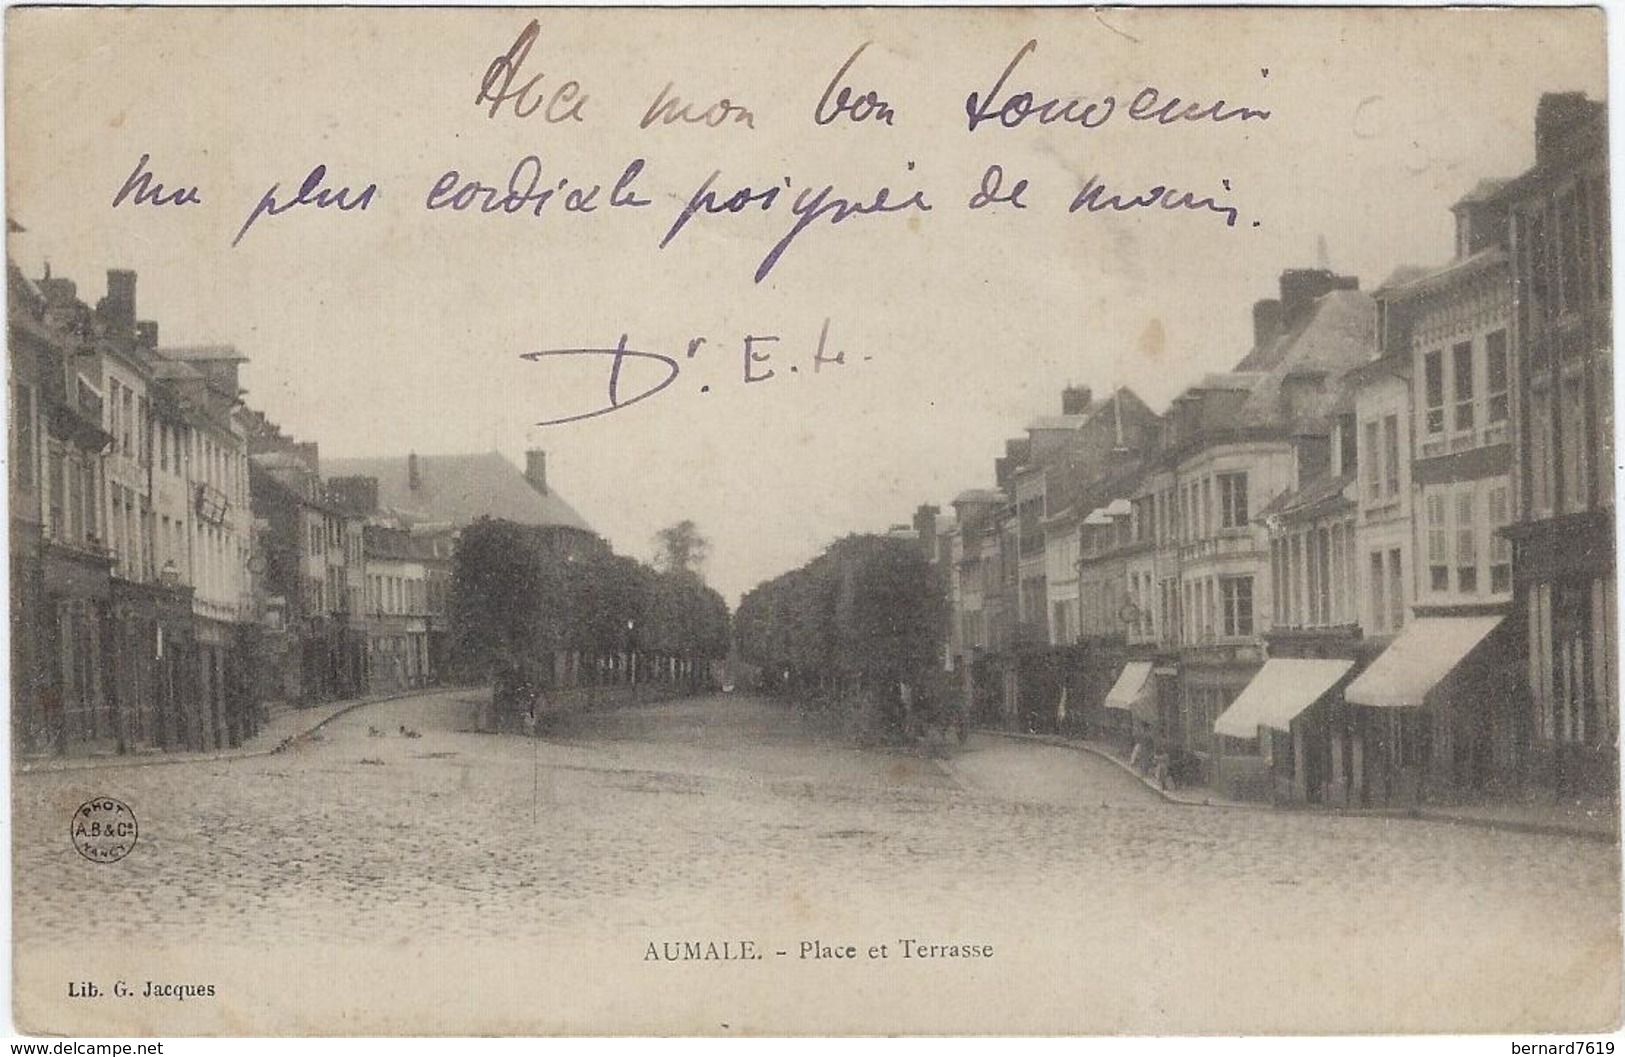 Avec mon bon souvenir
ma plus cordiale poignée de main.
Dr. E. L.
PHOT
A.B & Cie
NANCY
AUMALE. - Place et Terrasse
Lib. G. Jacques
www.delcampe.net
bernard7619